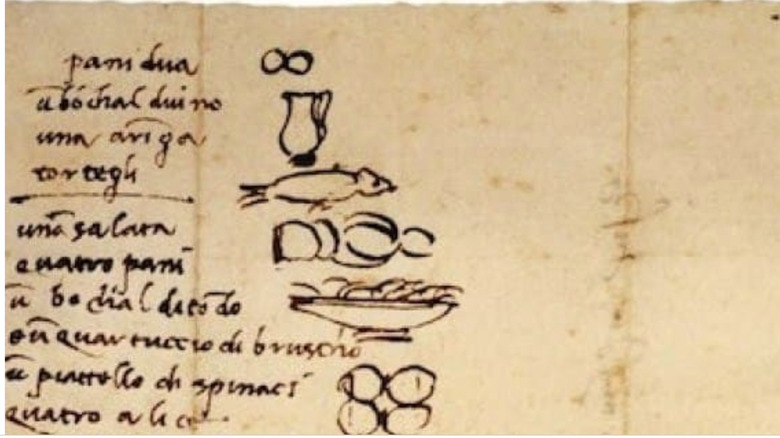 pani dua
ū bochal di vino
una aringa
tortegli
una salata
quatro pani
ū bochal di tōdo
e ū quartuccio di bruscho
ū piattello di spinaci
quatro alice